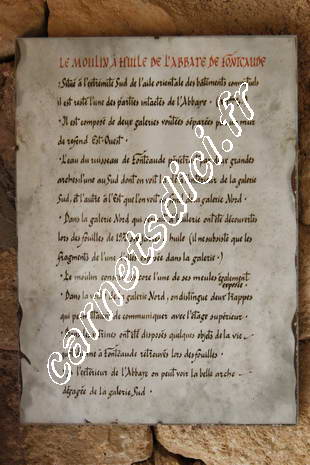 LE MOULIN A HUILE DE L'ABBAYE DE FONTCAUDE
• Situé à l'extrémité Sud de l'aile orientale des bâtiments
il est resté l'une des parties intactes de l'Abbaye.
• Il est composé de deux galeries voûtées séparées par un mur
de refend Est-Ouest.
• L'eau du ruisseau de Fontcaude grandes
arches: l'une au Sud dont on voit de la galerie
Sud, et l'autre à l'Est que l'on voit de la galerie Nord.
• Dans la galerie Nord qui galerie ont été découvertes
lors des fouilles de huile (il ne subsiste que les
fragments de l'une exposée dans la galerie)
• Le moulin conserve encore l'une de ses meules également
exposée
• Dans la voûte de la galerie Nord, on distingue deux trappes
qui permettaient de communiquer avec l'étage supérieur.
vitrines ont été disposés quelques objets de la vie
à Fontcaude retrouvés lors des fouilles.
l'extérieur de l'Abbaye on peut voir la belle arche
dégagée de la galerie Sud.
carnetsdici.fr